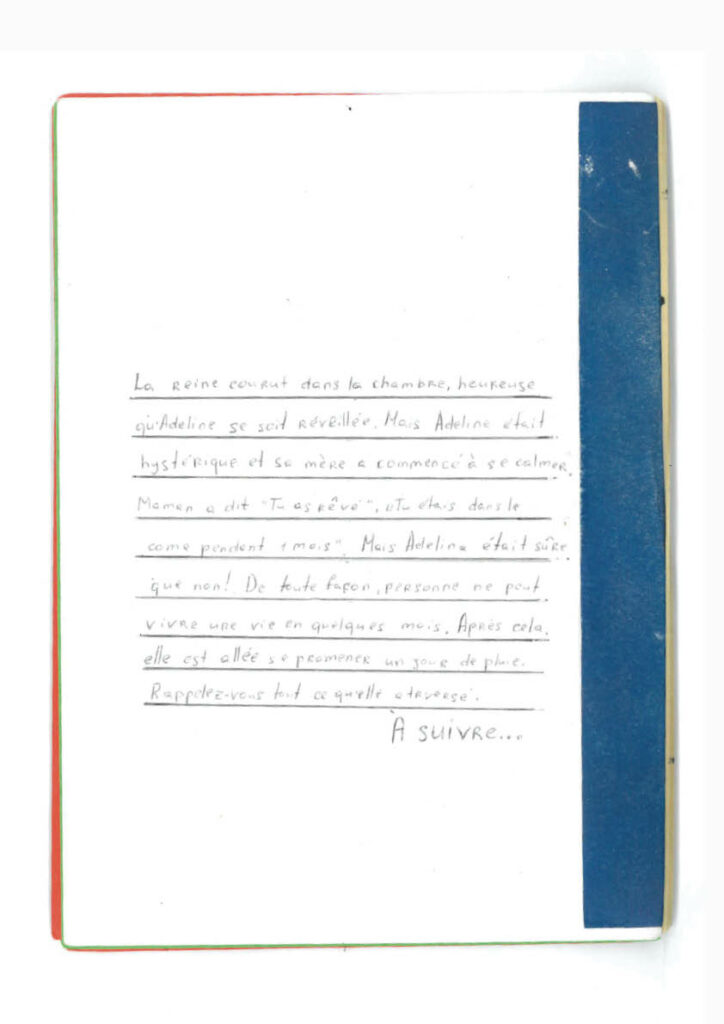 La reine courut dans la chambre, heureuse
qu'Adeline se soit réveillée. Mais Adeline était
hystérique et sa mère a commencé à se calmer.
Maman a dit "Tu as rêvé", "Tu étais dans le
coma pendent 1 mois". Mais Adeline était sûre
que non! De toute façon, personne ne peut
vivre une vie en quelques mois. Après cela,
elle est allée se promener un jour de pluie.
Rappelez-vous tout ce qu'elle a traversé.
À suivre...